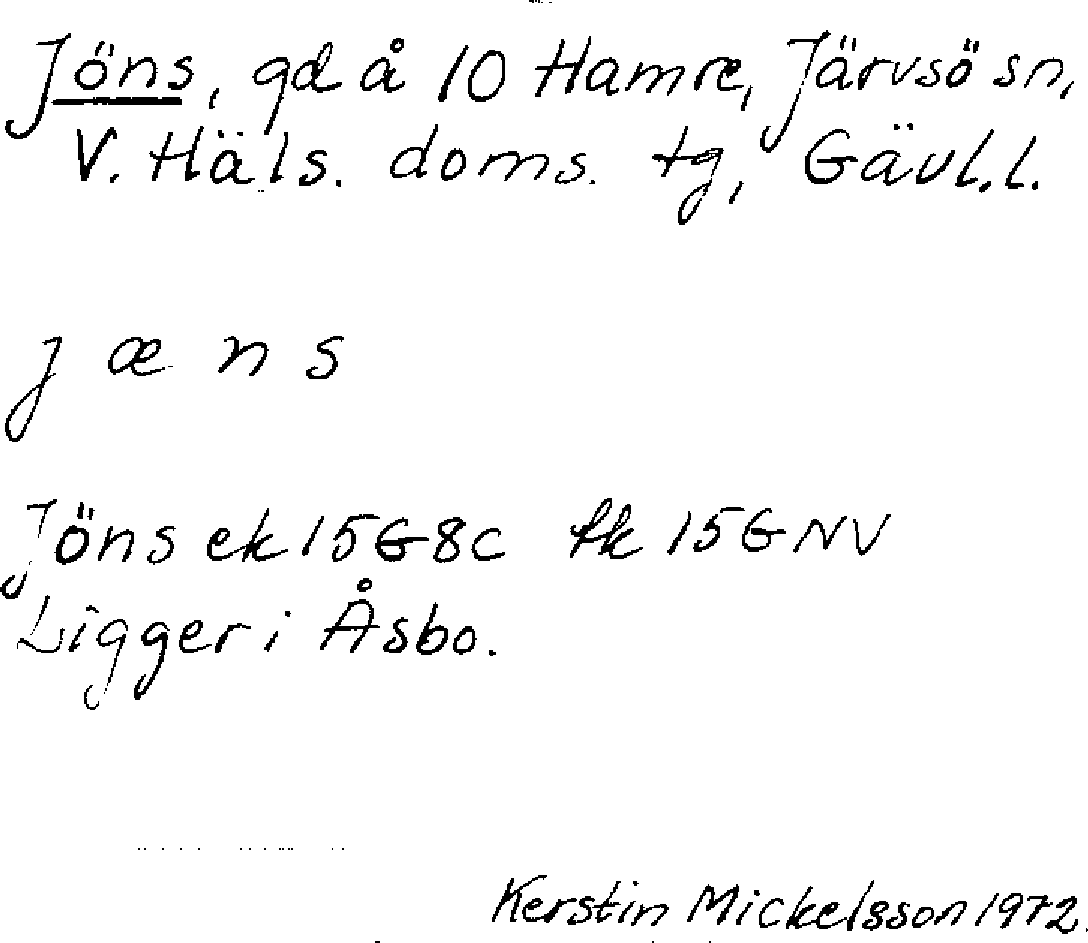 Jöns, gd å 10 Hamre, Järvsö sn,
V. Häls. doms. tg, Gävl.l.
j œ n s
Jöns ek 15G8c fk 15G NV
Ligger i Åsbo.
Kerstin Mickelsson 1972.